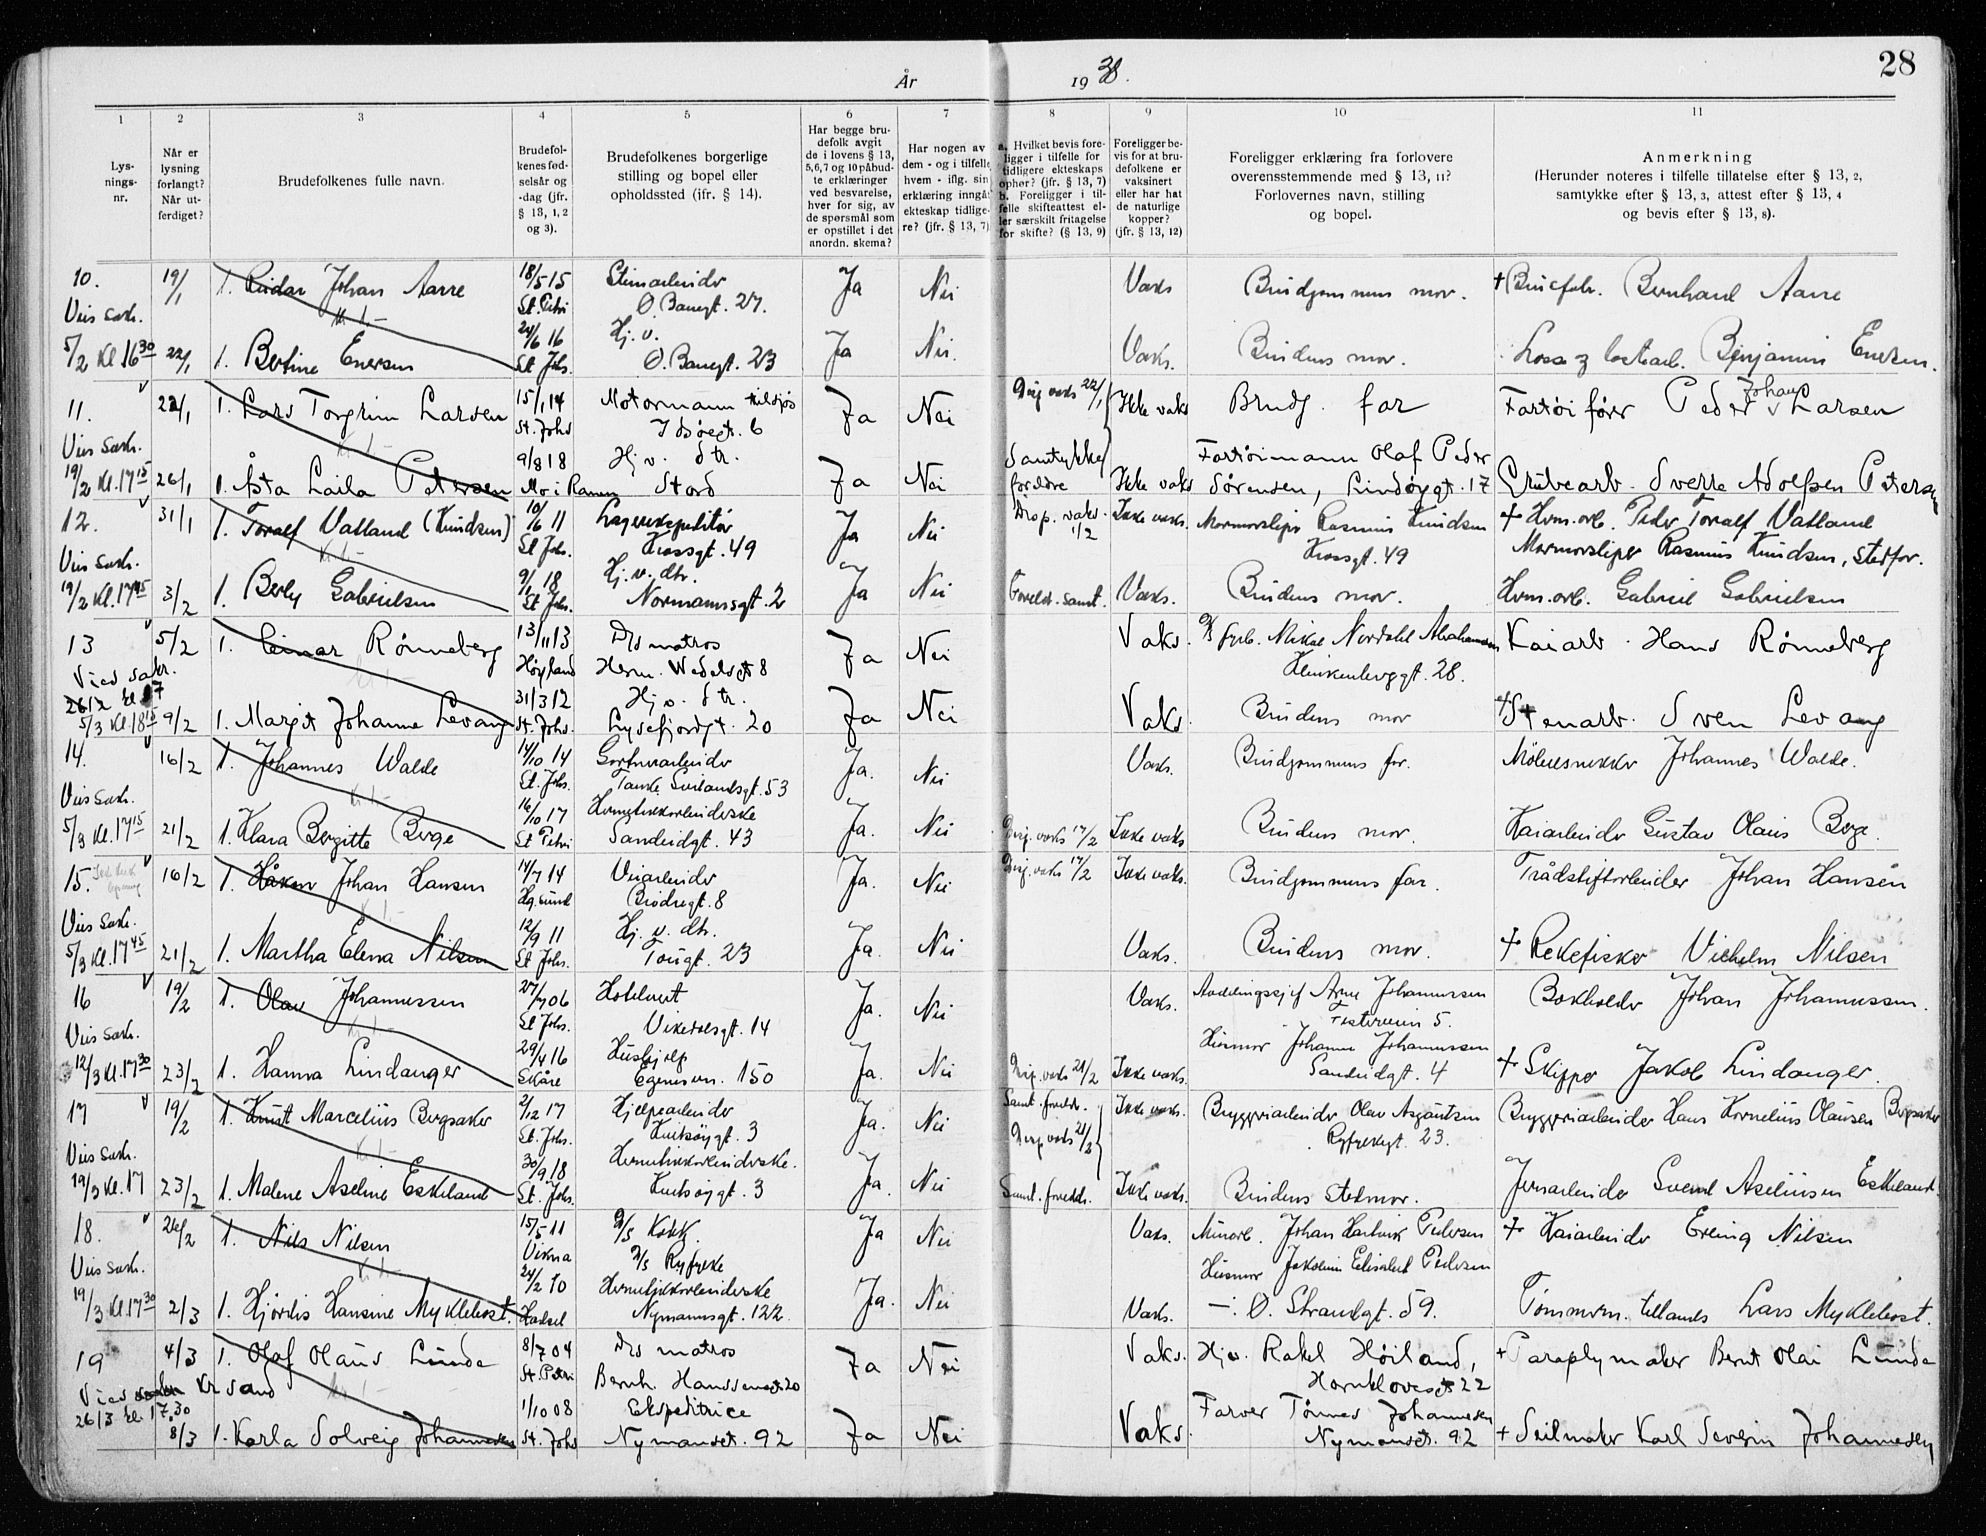 År 1938.
28
1 2 3 4 5 6 7 8 9 10 11
Lysnings-nr.
Når er lysning forlangt? Når utferdiget?
Brudefolkenes fulle navn.
Brudefolkenes fødselsår og -dag (jfr. § 13, 1, 2 og 3).
Brudefolkenes borgerlige stilling og bopel eller opholdssted (jfr. § 14).
Har begge brudefolk avgit de i lovens § 13, 5,6,7 og 10 påbudte erklæringer ved besvarelse, hver for sig, av de spørsmål som er opstillet i det anordn. skema?
Har nogen av dem - og i tilfelle hvem - iflg. sin erklæring inngå ekteskap tidligere? (jfr. § 13, 7)
a. Hvilket bevis foreligger i tilfelle for tidligere ekteskaps ophør? (jfr. § 13, 7) b. Foreligger i tilfelle skifteattest eller særskilt fritagelse for skifte? (§ 13, 9)
Foreligger bevis for at brudefolkene er vaksinert eller har hat de naturlige kopper? (jfr. § 13, 12)
Foreligger erklæring fra forlovere overensstemmende med § 13, 11? Forlovernes navn, stilling og bopel.
Anmerkning (Herunder noteres i tilfelle tillatelse efter § 13, 2, samtykke efter § 13, 3, attest efter § 13, 4 og bevis efter § 13, 8).
10. 19/1 1. Reidar Johan Aarre 18/5 15 St. Petri Stenarbeider Ø. Banegt. 27. Ja Nei Vaks Brudgommens mor. + Bernhard Aarre
Vies sakr. 5/2 Kl 16 30 22/1 1. Bertine Enersen 24/6 16 St. Johs. Hj. v. Ø. Banegt. 23 Ja Nei. Vaks. Brudens mor. Benjamin Enersen.
11. 22/1 1. Lars Torgrim Larsen 15/1 14 St. Johs Motormann Ja Nei Disp vaks 22/1 Ikke vaks Brudg. far Fartøifører Peder Johan Larsen
Vies sakr. 19/2 Kl. 17 15 26/1 1. Åsta Laila Petersen 9/8 18 Mo i Ranen Hj v. dtr. Stord Ja Nei Samtykke foreldre Ikke vaks Fartøimann Olaf Peder Sørensen, Lindøygt. 17 Grubearb. Sverre Adolfsen Petersen
12. 31/1 1. Toralf Vatland (Knudsen) 10/6 11 St Johs. Lagerekspeditør Krossgt. 49 Ja Nei Disp. vaks. 1/2 Ikke vaks. Marmorsliper Rasmus Knudsen Krossgt. 49 + Herm.arb. Peder Toralf Vatland Marmorsliper Rasmus Knudsen, stedfar.
Vies sakr. 19/2 Kl. 17 45 3/2 1. Berly Gabrielsen 9/1 18 St Johs. Hj. v. dtr. Normannsgt. 2 Ja Nei Foreld. samt. Vaks. Brudens mor. Herm.arb. Gabriel Gabrielsen
13 5/2 1. Einar Rønneberg 13/11 13 Høyland D/s matros Herm. Wedelsgt 8 Ja Nei Vaks. Mikal Nordahl Abrahamsen 28. Kaiarb. Hans Rønneberg
Vies sakr. 26/2 kl 17 5/3 Kl. 18 15 9/2 1. Margit Johanne Levang 31/3 12 St. Johs. Hj v. dtr. Lysefjordgt. 20 Ja Nei Vaks Brudens mor Stenarb. Sven Levang
14. 16/2 1. Johannes Walde 14/10 14 St. Johs. Tanke Svilandsgt. 53 Ja. Nei Vaks. Brudgommens far. Møbelsnekker Johannes Walde.
Vies sakr. 5/3 Kl. 17 15 21/2 1. Klara Bergitte Berge 16/10 17 St Petri Hermetikkarbeiderske Sandeidgt. 43 Ja. Nei Disp. vaks 17/2 Ikke vaks Brudens mor. Kaiarbeider Gustav Olaus Berge.
15. 16/2 1. Håkon Johan Hansen 14/7 14 Hg.sund Veiarbeider Ja. Nei Disp. vaks 17/2 Ikke vaks. Brudgommens far. Trådstiftarbeider Johan Hansen
Vies sakr. 5/3 Kl. 17 45 21/2 1. Martha Elena Nilsen 12/9 11 St Johs. Hj. v. dtr. Tougt. 23 Ja. Nei Vaks. Brudens mor. + Rekefisker Vilhelm Nilsen
16 19/2 1. Olav Johannessen 27/7 06 St Johs. Hotelvert Vikedalsgt. 14 Ja. Nei Vaks. Avdelingssjef Arne Johannessen 5. Bokholder Johan Johannessen.
Vies sakr. 12/3 Kl. 17 30 23/2 1. Hanna Lindanger 29/4 16 Skåre Hushjelp Egenesvn. 150 Ja. Nei Disp. vaks 21/2 Ikke vaks. Husmor Johanne Johannessen Sandeidgt. 4 + Skipper Jakob Lindanger.
17 19/2 1. Knut Marcelius Bergsaker 2/12 17 St. Johs. Hjelpearbeider Kvitsøygt. 3 Ja. Nei Samt. foreldr. Disp vaks 21/2 Ikke vaks. Bryggeriarbeider Olav Asgautsen Ryfylkegt. 23. Bryggeriarbeider Hans Kornelius Olausen Bergsaker
Vies sakr. 19/3 Kl. 17 23/2 1. Malene Aseline Eskeland 30/9 18 St. Johs. Hermetikkarbeiderske. Kvitsøygt. 3 Ja. Nei Samt. foreldr. Ikke vaks. Brudens stedmor. Jernarbeider Svend Aseliusen Eskeland.
18. 26/2 1. Nils Nilsen 15/5 11 Vikna D/s Kokk. D/s Ryfylke Ja Nei Vaks. Murarb. Johan Hartvik Pedersen + Kaiarbeider Erling Nilsen
Vies sakr. 19/3 Kl. 17 30 2/3 1. Hjørdis Hansine Myklebost. 24/2 10 Hadsel Hermetikkarbeiderske Nymannsgt. 122. Ja. Nei Vaks. Husmor Jakobine Elisabet Pedersen Ø. Strandgt. 59. Tømmerm. tillands Lars Myklebost.
19 4/3 1. Olaf Olaus Lunde 8/7 04 St. Petri D/s matros Bernh. Hanssensgt 20 Ja Nei Vaks. Hjv. Rakel Høiland, Hornklovesgt 22 + Paraplymaker Bernt Olai Lunde
Vies Kr sand 26/3 kl. 17.30 8/3 1. Karla Solveig Johannesen 1/10 08 St. Johs Ekspeditrice Nymansgt. 92 Ja Nei Vaks. Farver Tønnes Johannesen Nymansgt. 92 + Seilmaker Karl Severin Johannesen